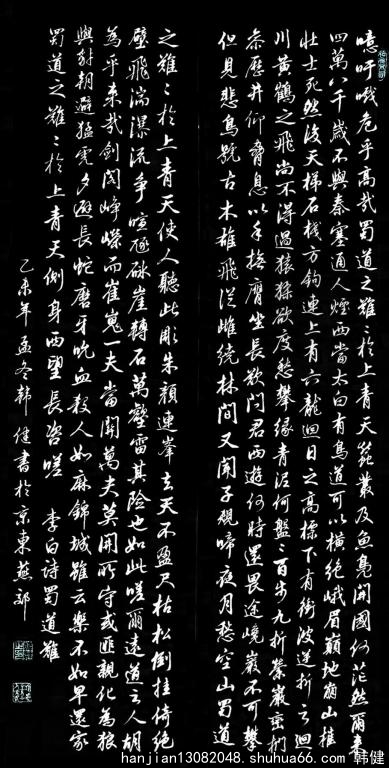 噫吁嚱危乎高哉蜀道之難々於上青天蠶叢及魚鳧開國何茫然爾來
四萬八千歲不與秦塞通人煙西當太白有鳥道可以橫絕峨眉巔地崩山摧
壯士死然後天梯石棧方鉤連上有六龍迴日之高標下有衝波逆折之迴
川黃鶴之飛尚不得過猿猱欲度愁攀緣青泥何盤々百步九折縈巖巒捫
參歷井仰脅息以手撫膺坐長歎問君西遊何時還畏途巉巖不可攀
但見悲鳥號古木雄飛從雌繞林間又聞子規啼夜月愁空山蜀道
之難々於上青天使人聽此彫朱顏連峰去天不盈尺枯松倒挂倚絕
壁飛湍瀑流爭喧豗砯崖轉石萬壑雷其險也如此嗟爾遠道之人胡
為乎來哉劍閣崢嶸而崔嵬一夫當關萬夫莫開所守或匪親化為狼
與豺朝避猛虎夕避長蛇磨牙吮血殺人如麻錦城雖云樂不如早還家
蜀道之難々於上青天側身西望長咨嗟 李白詩蜀道難
乙未年孟冬韓健書於京東燕郊
hanjian13082048.shuhua66.com 韩健